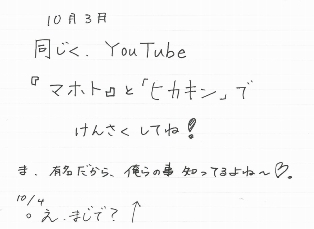 10月3日
同じく、YouTube
『マホト』と「ヒカキン」で
けんさくしてね!
ま、有名だから、俺らの事知ってるよね〜♡。
10/4
。え、まじで?↑